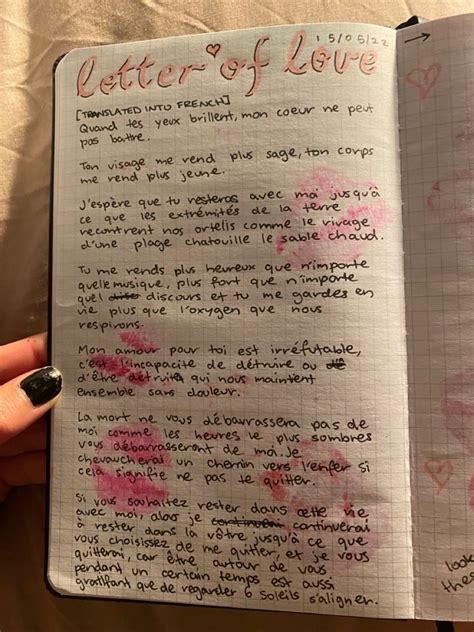 15/05/22
letter of love
[TRANSLATED INTO FRENCH]
Quand tes yeux brillent, mon coeur ne peut
pas battre.
Ton visage me rend plus sage, ton corps
me rend plus jeune.
J'espère que tu resteras avec moi jusqu'à
ce que les extrémités de la terre
recontrent nos orteils comme le rivage
d'une plage chatouille le sable chaud.
Tu me rends plus heureux que n'importe
quelle musique, plus fort que n'importe
quel discours et tu me gardes en
vie plus que l'oxygen que nous
respirons.
Mon amour pour toi est irréfutable,
c'est l'incapacite de détruire ou
d'être détruit, qui nous maintent
ensemble sans douleur.
La mort ne vous débarrassera pas de
moi comme les heures le plus sombres
vous débarrasseront de moi. Je
chevaucherai un chemin vers l'enfer si
cela signifie ne pas te quitter.
Si vous souhaitez rester dans cette vie
avec moi, alors je continuerai
à rester dans la vôtre jusqu'à ce que
vous choisissez de me quitter, et je vous
quitterai, car être autour de vous
pendant un certain temps est aussi
gratifant que de regarder 6 soleils s'aligner.
look
thes